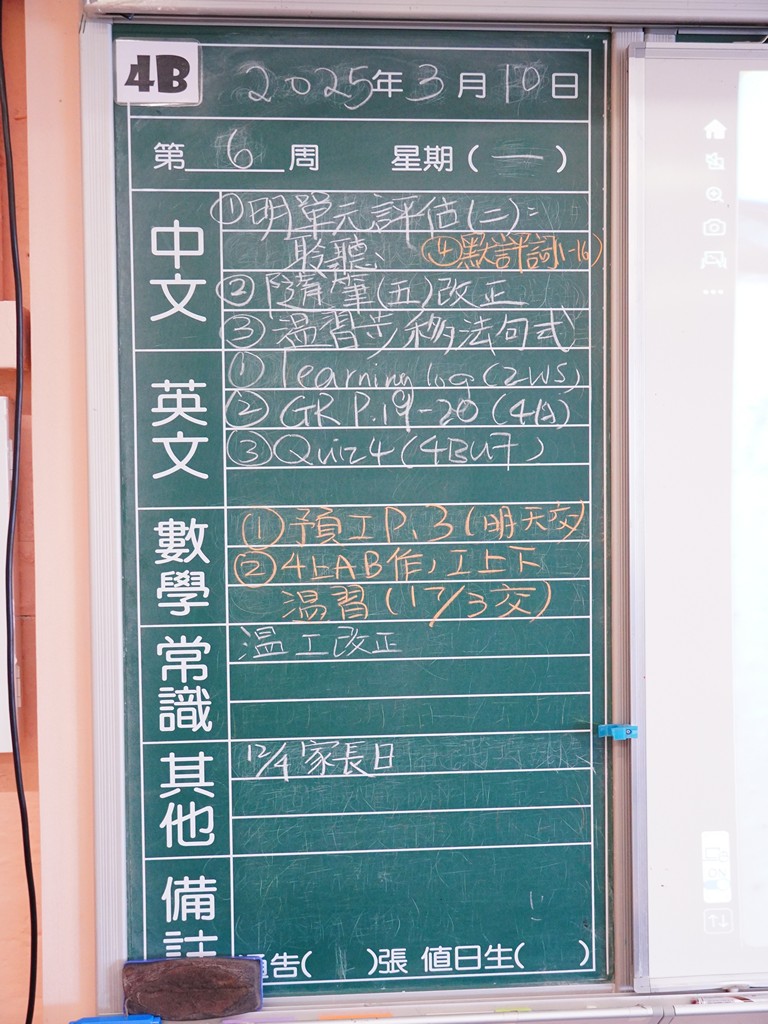 4B
2025年3月10日
第6周 星期(一)
中文
①明單元評估(二):
聆聽、 ④默評詞(1-16)
②隨筆(五)改正
③溫習步移法句式
英文
① learning log (2WS)
② GR P.19-20 (4A)
③ Quiz 4 (4BU7)
數學
①預工P.3(明天交)
②4上AB作,工上下
溫習(17/3交)
常識
溫工改正
其他
12/4 家長日
備註
告( )張 值日生( )